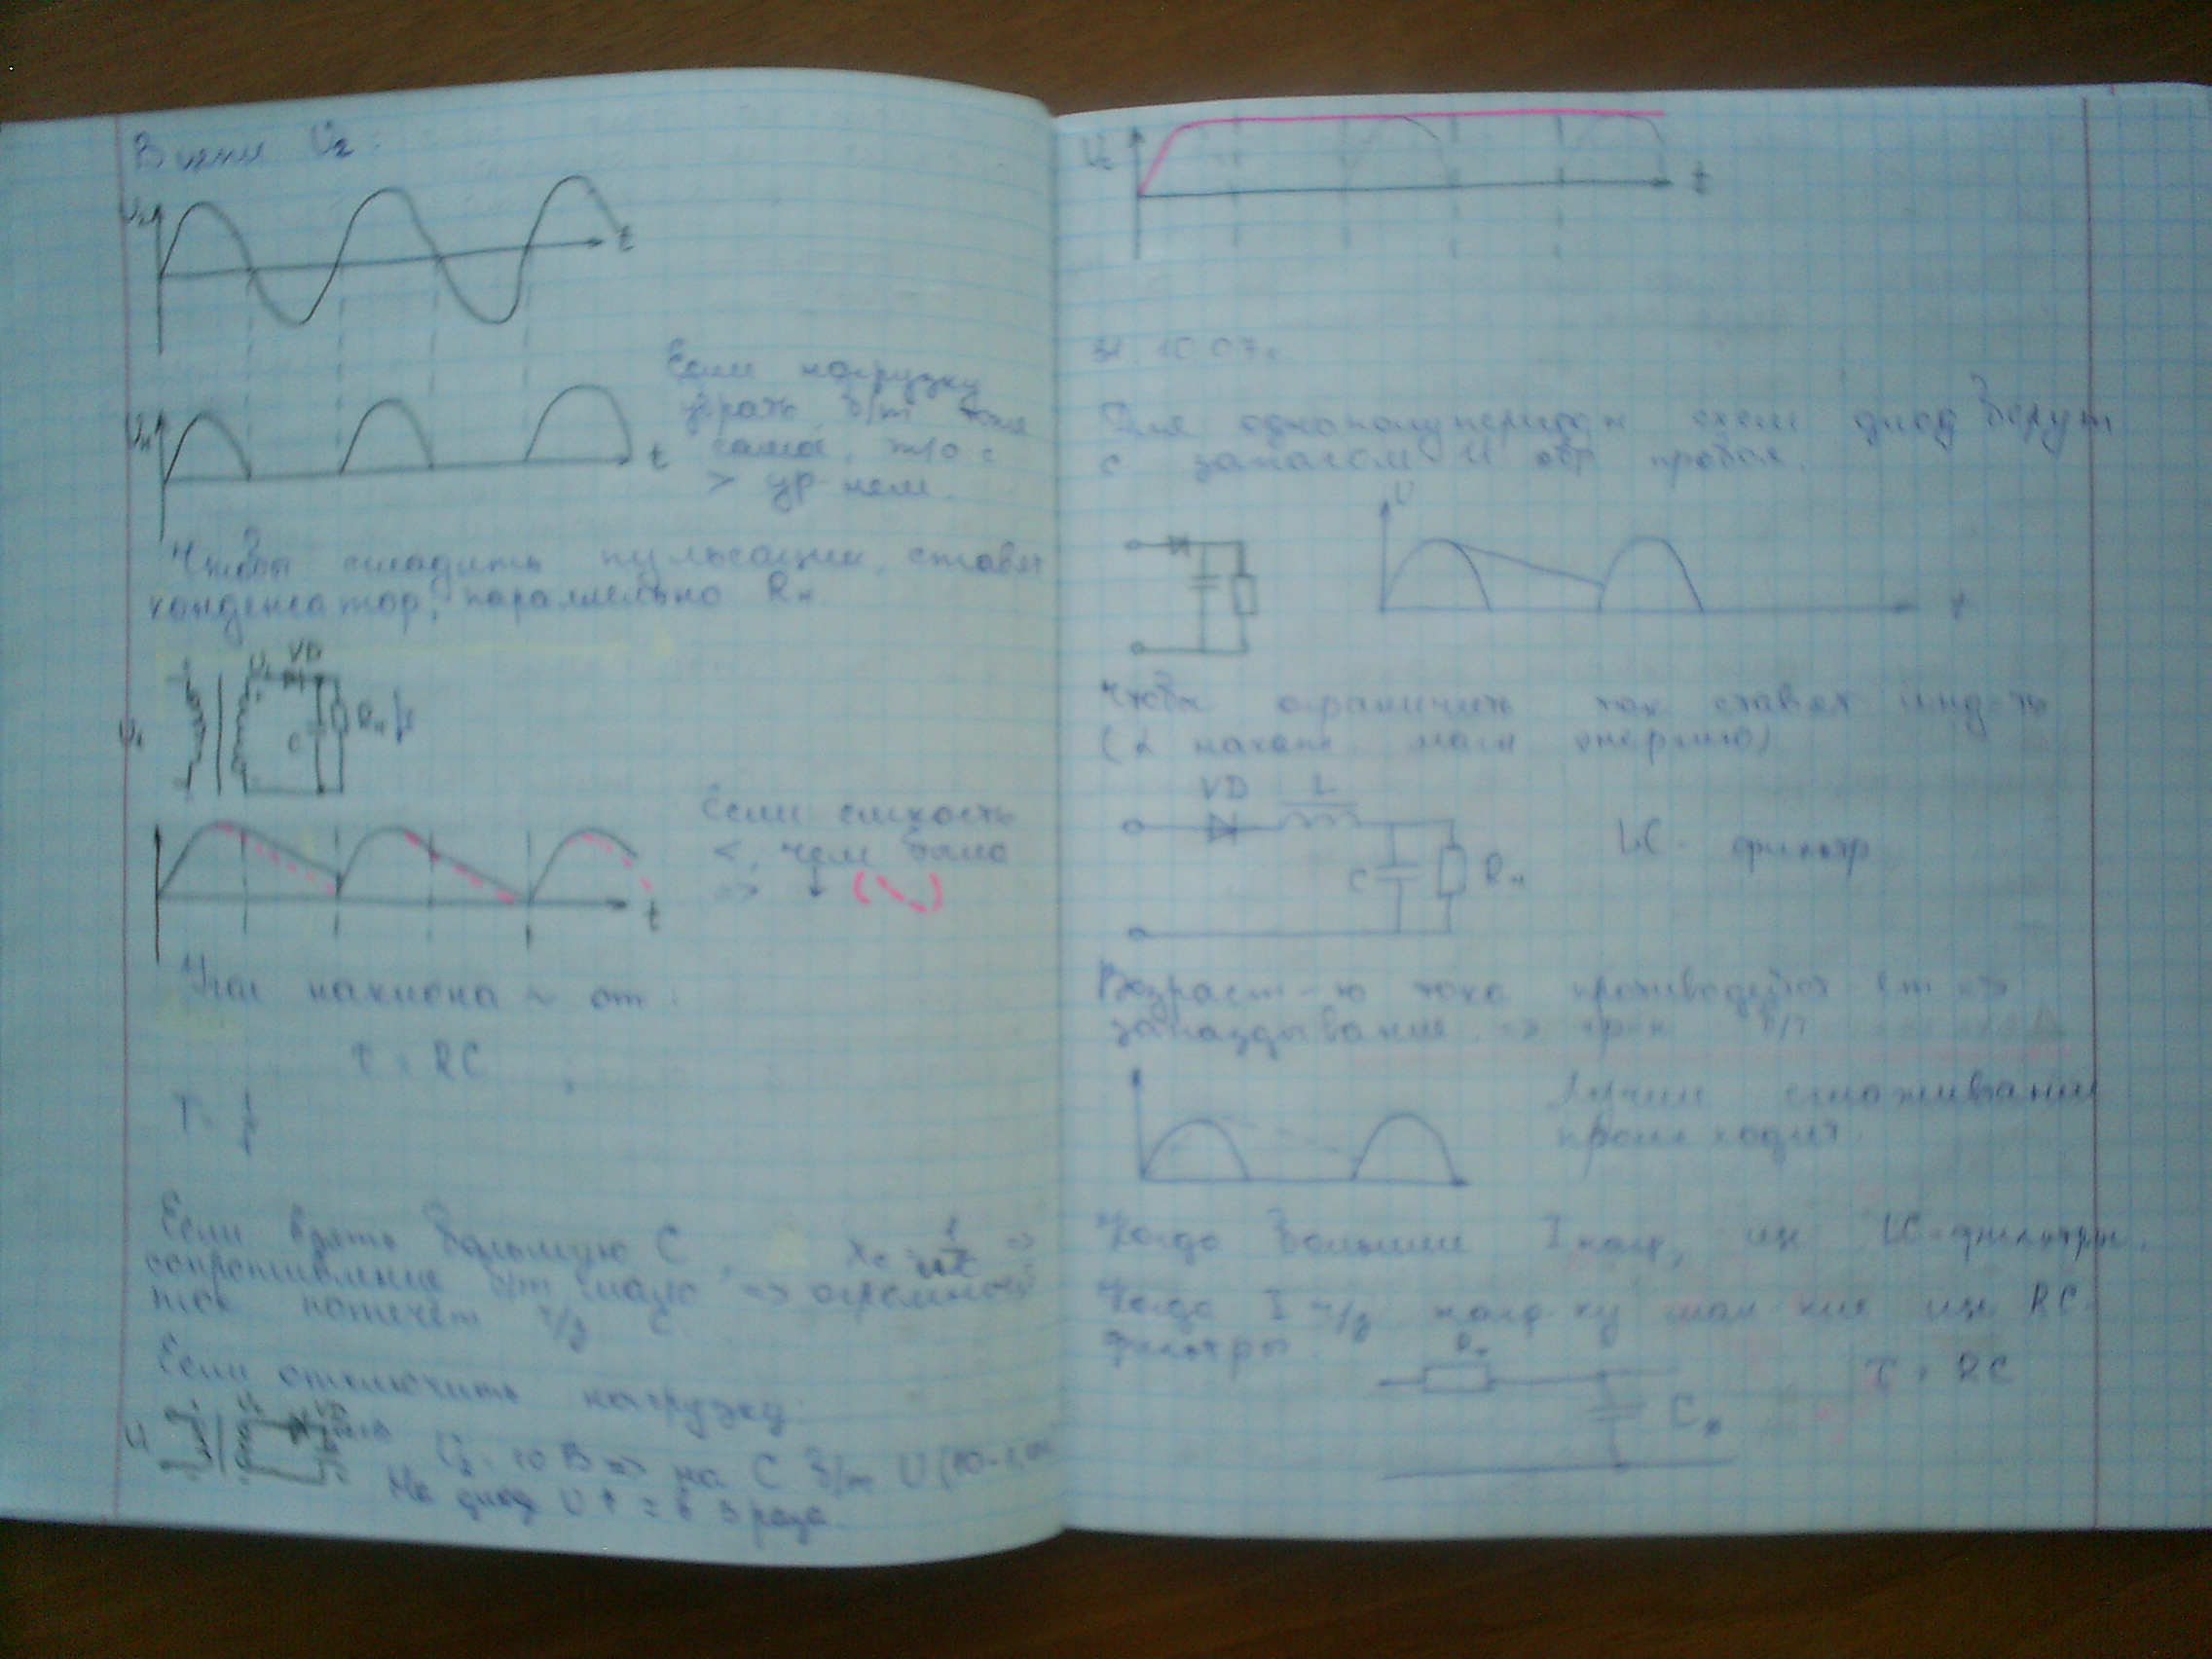 В цепи U₂:
U₂
t
Uн
t
Если нагрузку
убрать б/т тоже
самое, т/о с
> ур-нем.
Чтобы сгладить пульсации, ставят
конденсатор, параллельно Rн
U₂ VD
U₁
C Rн
Если емкость
<, чем была
=> ↓ ( )
t
Угол наклона ~ от:
τ = RC
T = ↓
Если взять большую C, Xc = =>
сопротивление б/т мало => огромной
ток потечёт ч/з C.
Если отключить нагрузку:
U₂ VD
U₂ = 10 В => на C б/т U
На диод U ↑ ≈ в 3 раза.
Uc
t
31.10.07г.
Для однополупериодн схем диод берут
с запасом U обр пробоя.
U
t
Чтобы ограничить ток ставят инд-ть
(L накапл. магн энергию)
VD L
LC - фильтр
C Rн
Возраст-ю тока
запаздывание. =>
Лучше сглаживание
происходит.
Когда большие I нагр, исп LC-фильтры.
Когда I ч/з нагр-ку исп RC-
фильтры.
τ = RC